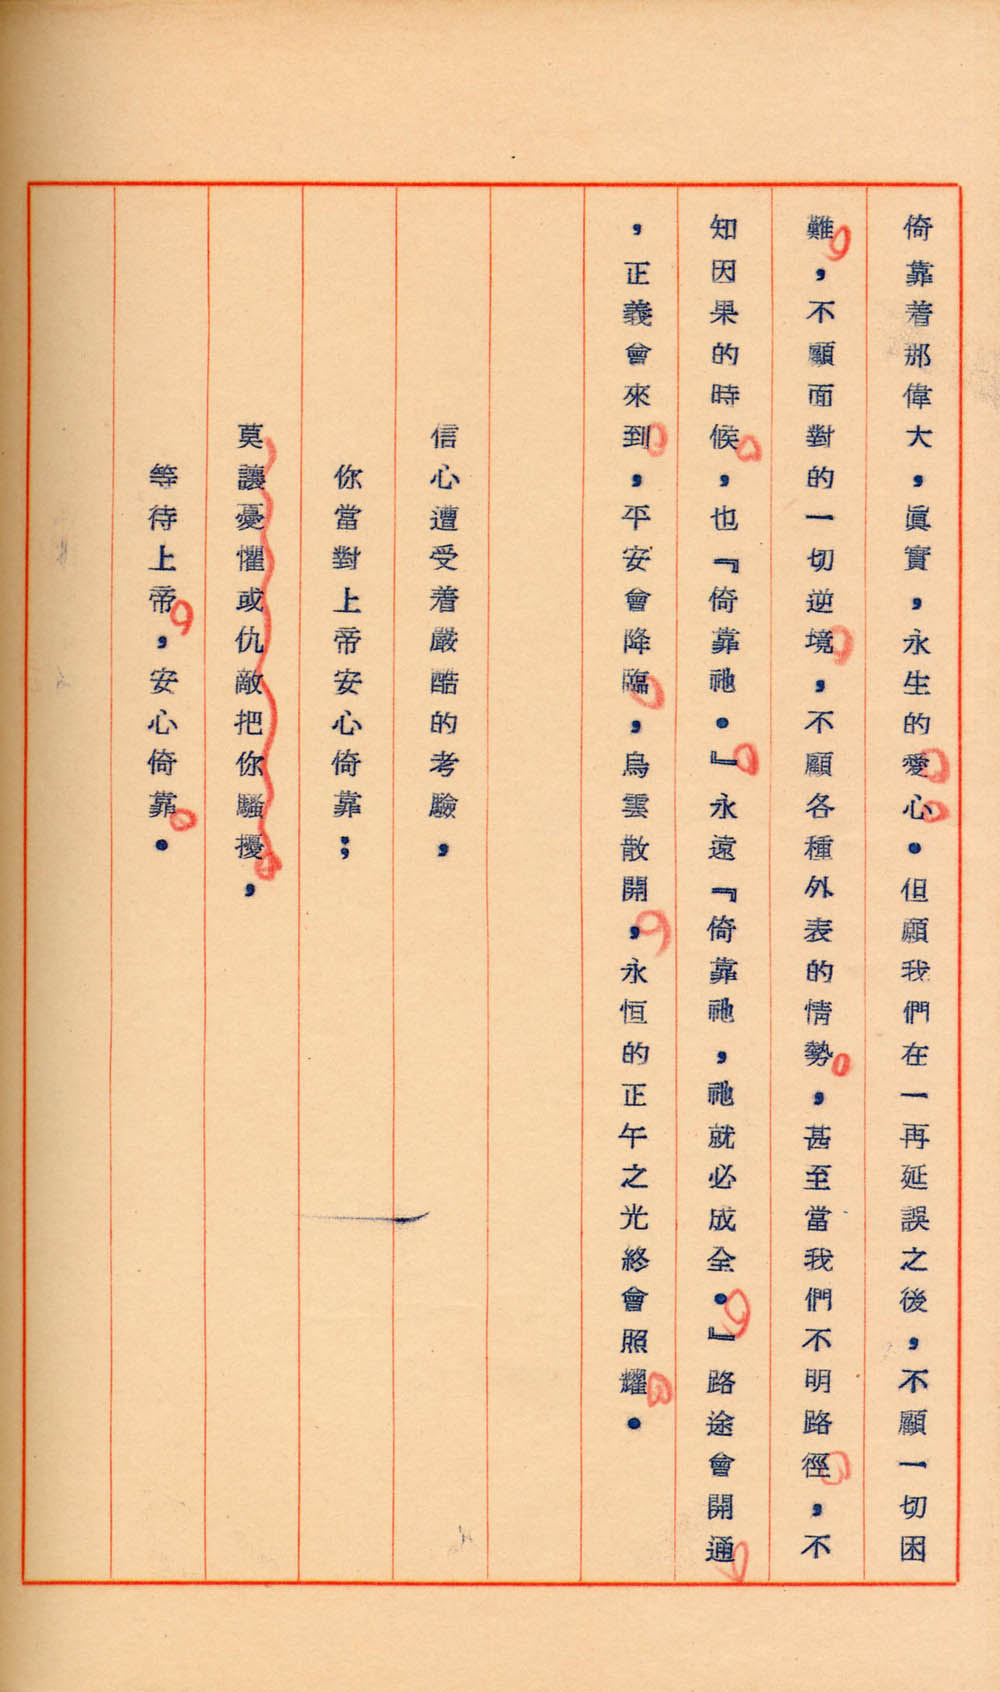 倚靠着那偉大，眞實，永生的愛心。但願我們在一再延誤之後，不顧一切困
難，不顧面對的一切逆境，不顧各種外表的情勢，甚至當我們不明路徑，不
知因果的時候，也『倚靠祂。』永遠『倚靠祂，祂就必成全。』路途會開通
，正義會來到，平安會降臨，烏雲散開，永恒的正午之光終會照耀。
信心遭受着嚴酷的考驗，
你當對上帝安心倚靠；
莫讓憂懼或仇敵把你騷擾，
等待上帝，安心倚靠。